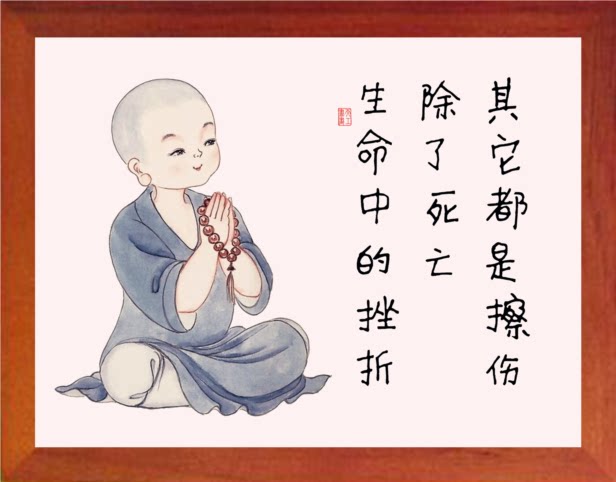 生命中的挫折
除了死亡
其它都是擦伤